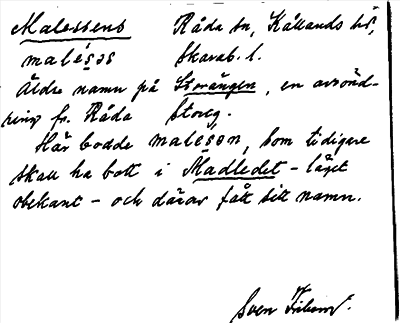 Malessens Råda sn, Kållands hd,
malésǝs Skarab. l.
Äldre namn på Storängen, en avsönd-
ring fr. Råda Storeg.
Här bodde malésǝn, som tidigare
skall ha bott i Madledet - läget
obekant - och därav fått sitt namn.
Sven